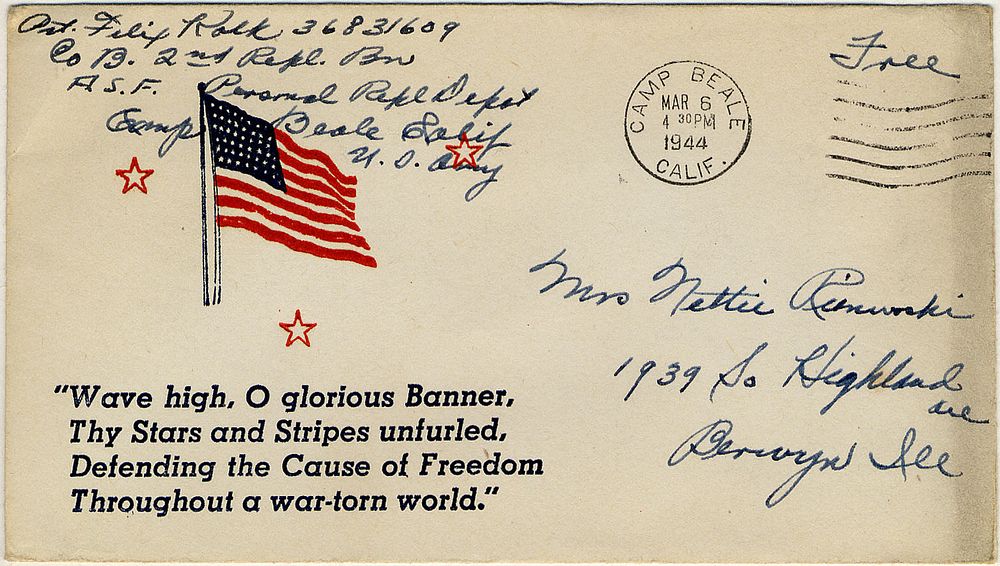 Pvt. Felix Kolk 36831609
Co B. 2nd Repl. Bn
A.S.F. Personal Repl Depot
Camp Beale Calif
U. S. Army
Free
CAMP BEALE
MAR 6
4 30 PM
1944
CALIF.
Mrs Nettie
1939 So Highland
ave
Berwyn Ill
"Wave high, O glorious Banner,
Thy Stars and Stripes unfurled,
Defending the Cause of Freedom
Throughout a war-torn world."